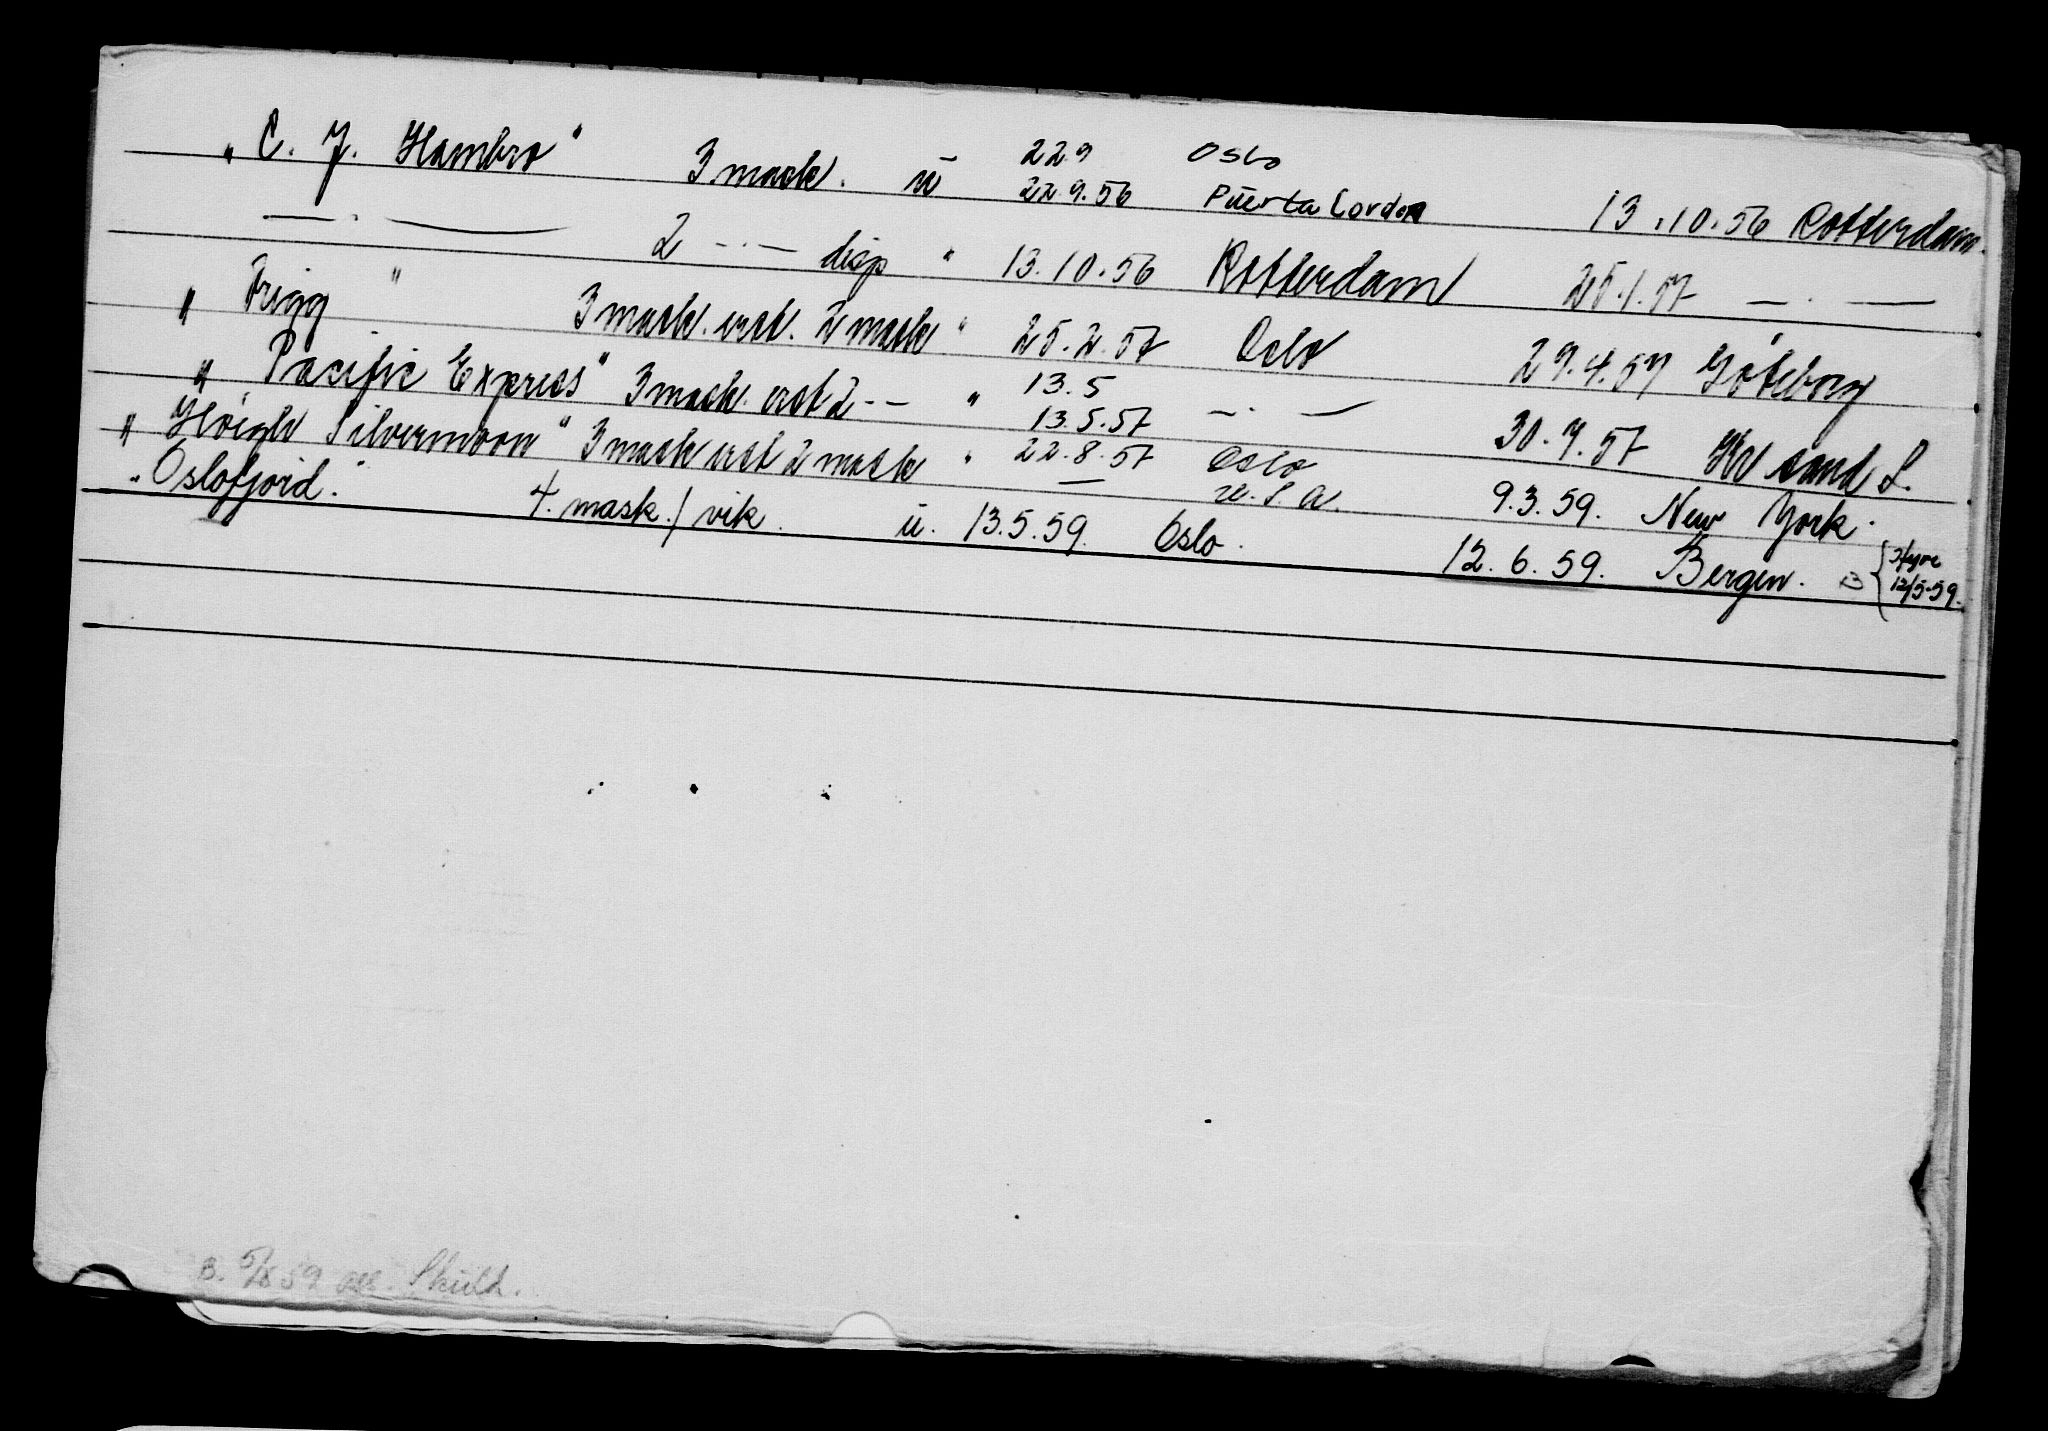 „ C. J. Hambro " 3 mask. ū 22.9 Oslo
22.9.56 Puerta Cordon 13.10.56 Rotterdam.
— . — 2 — . — disp " 13.10.56 Rotterdam 25.1.57 — . —
„ Frigg " 3 mask. erst. 2 mask " 25.2.57 Oslo 29.4.57 Göteborg
„ Pacific Express " 3 mask. erst 2 - — " 13.5
13.5.57 — . — 30.7.57 Kr sand S.
„ Höegh Silvermoon " 3 mask erst 2 mask " 22.8.57 Oslo
— U.S.A. 9.3.59. New York.
„ Oslofjord. " 4. mask./vik. ū. 13.5.59. Oslo. 12.6.59. Bergen. B { Hyre 12/5-59.
B. 5/8 59 Skuld.